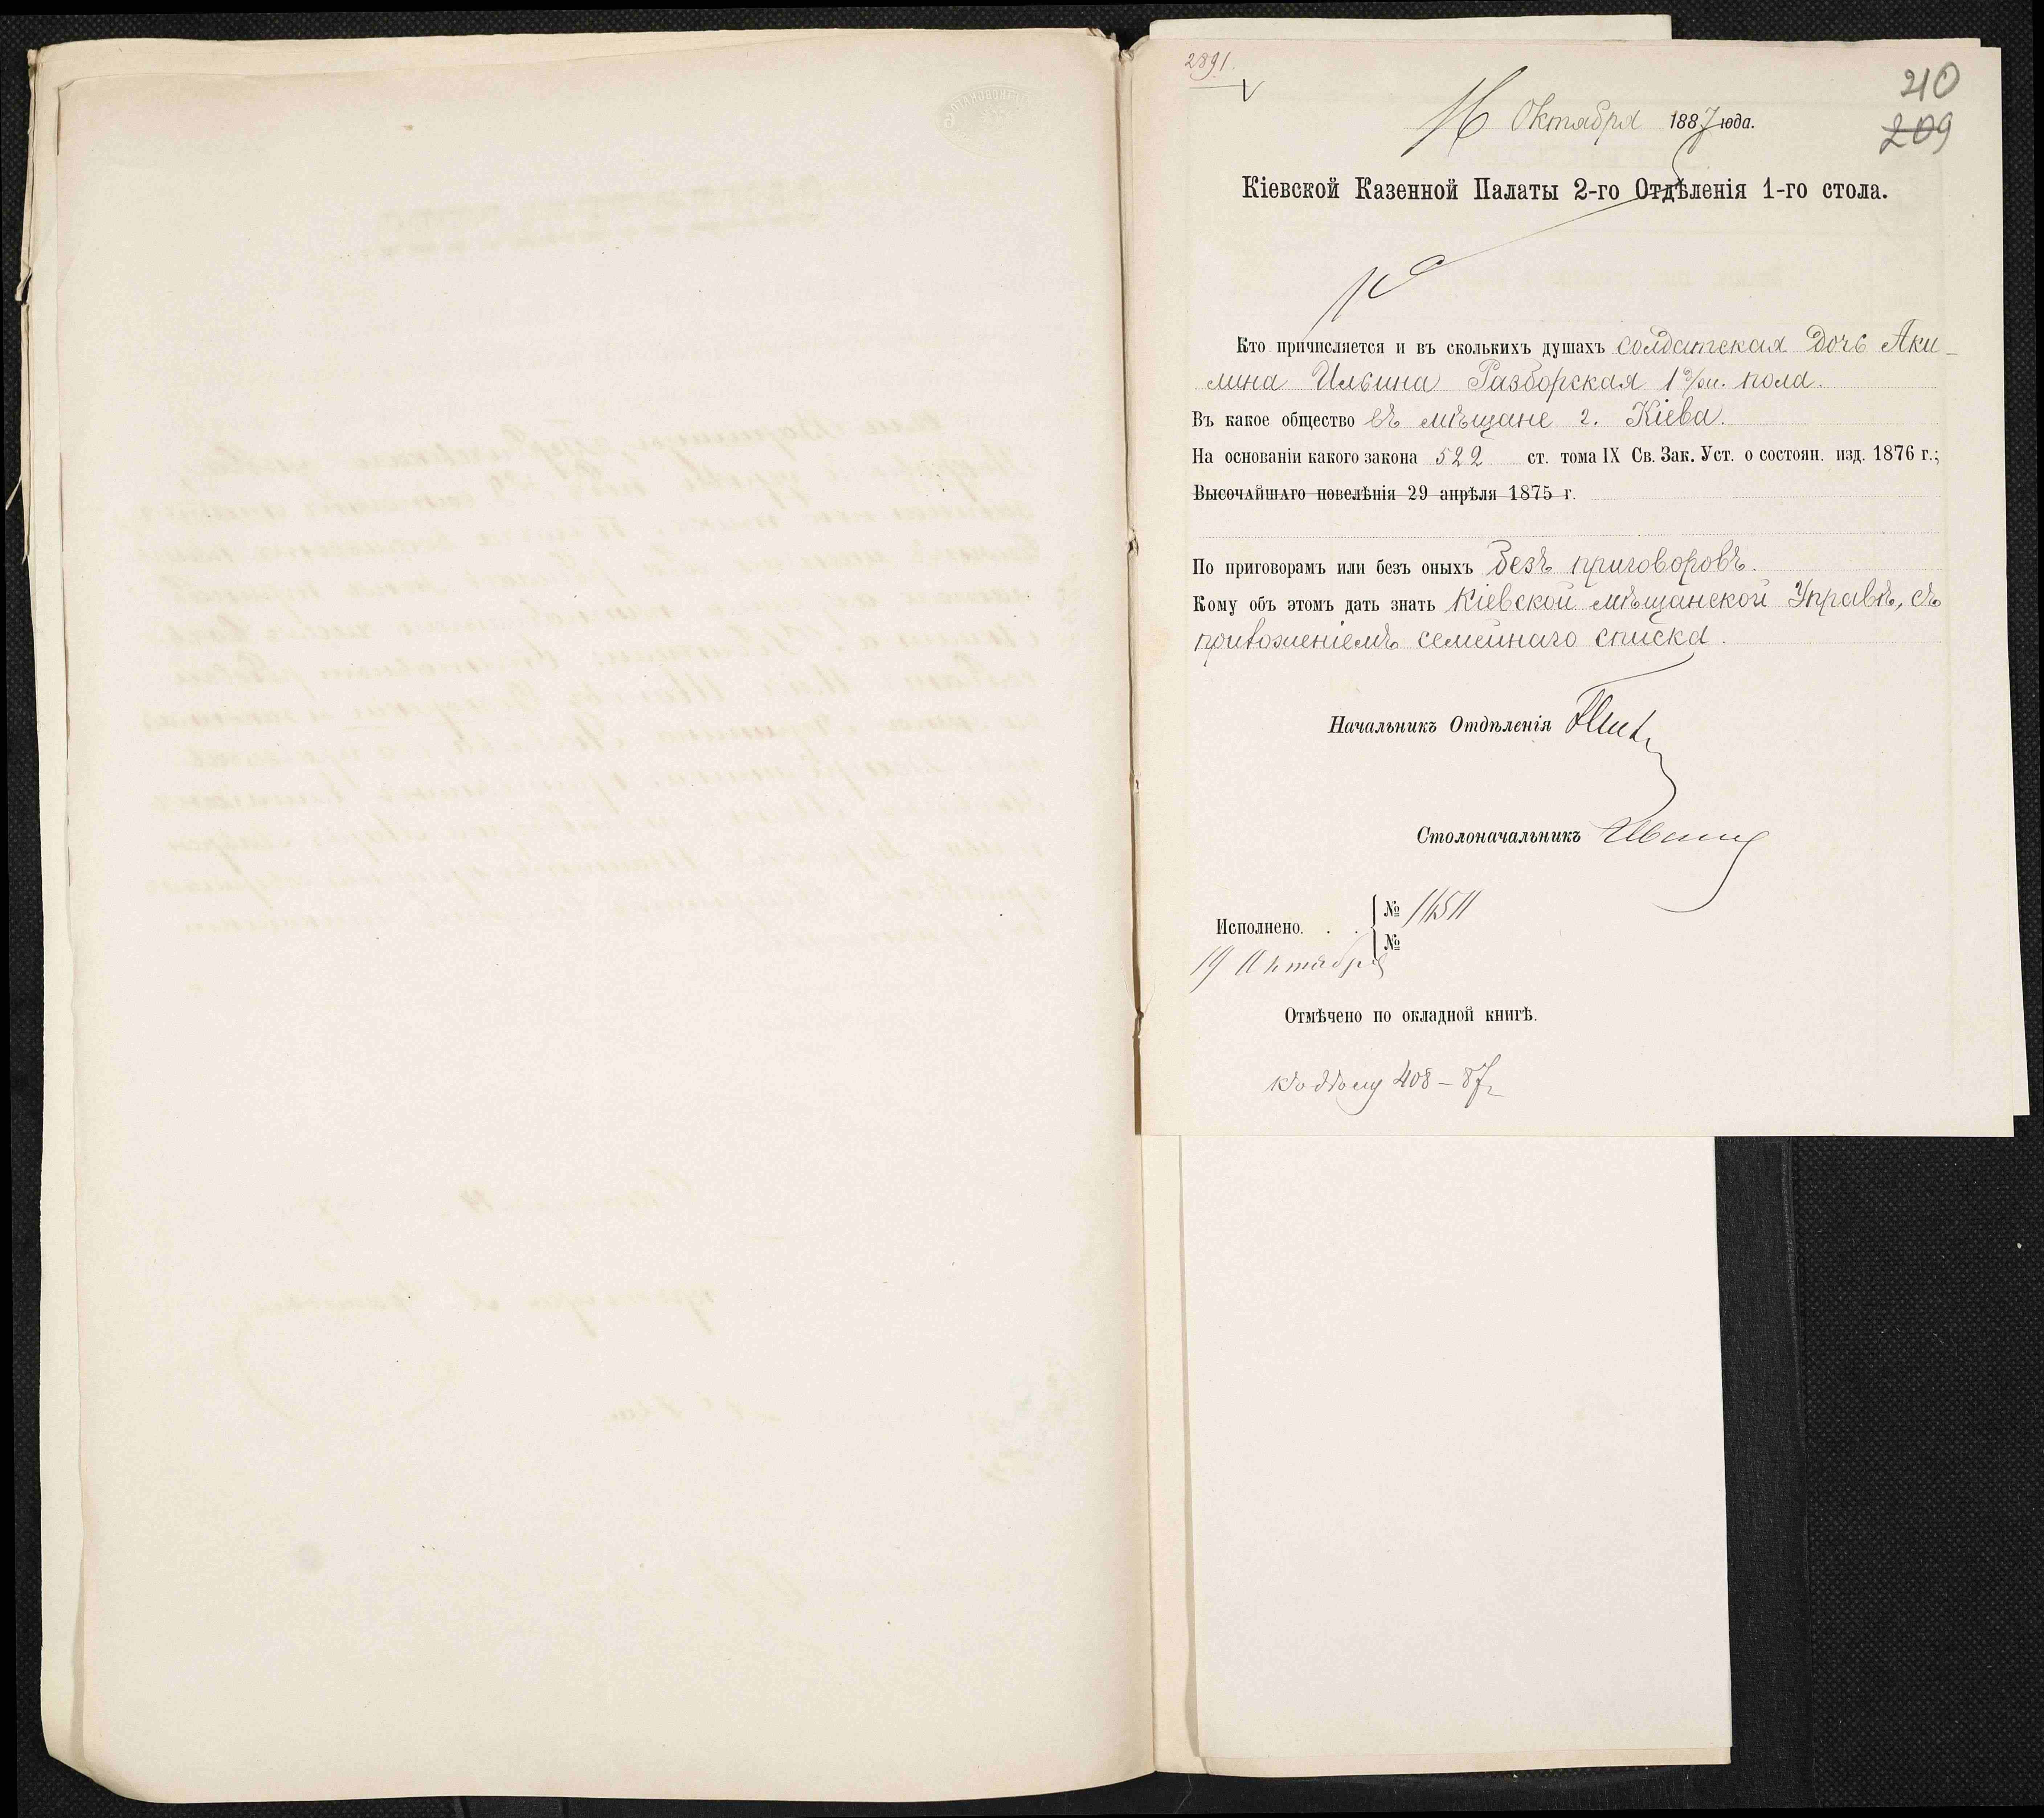 2891.
210
209
16 Октября 1887 года.
Кіевской Казенной Палаты 2-го Отдѣленія 1-го стола.
Кто причисляется и въ сколькихъ душахъ солдатская дочь Аки-
лина Ильина Разборская 1 ж. пола.
Въ какое общество въ мѣщане г. Кіева.
На основаніи какого закона 522 ст. тома IX Св. Зак. Уст. о состоян. изд. 1876 г.;
Высочайшаго повелѣнія 29 апрѣля 1875 г.
По приговорамъ или безъ оныхъ Безъ приговоровъ.
Кому объ этомъ дать знать Кіевской мѣщанской Управѣ, съ
приложеніемъ семейнаго списка.
Начальникъ Отдѣленія
Столоначальникъ
Исполнено. . . № 11511
№
19 Октября
Отмѣчено по окладной книгѣ.
408 – 87